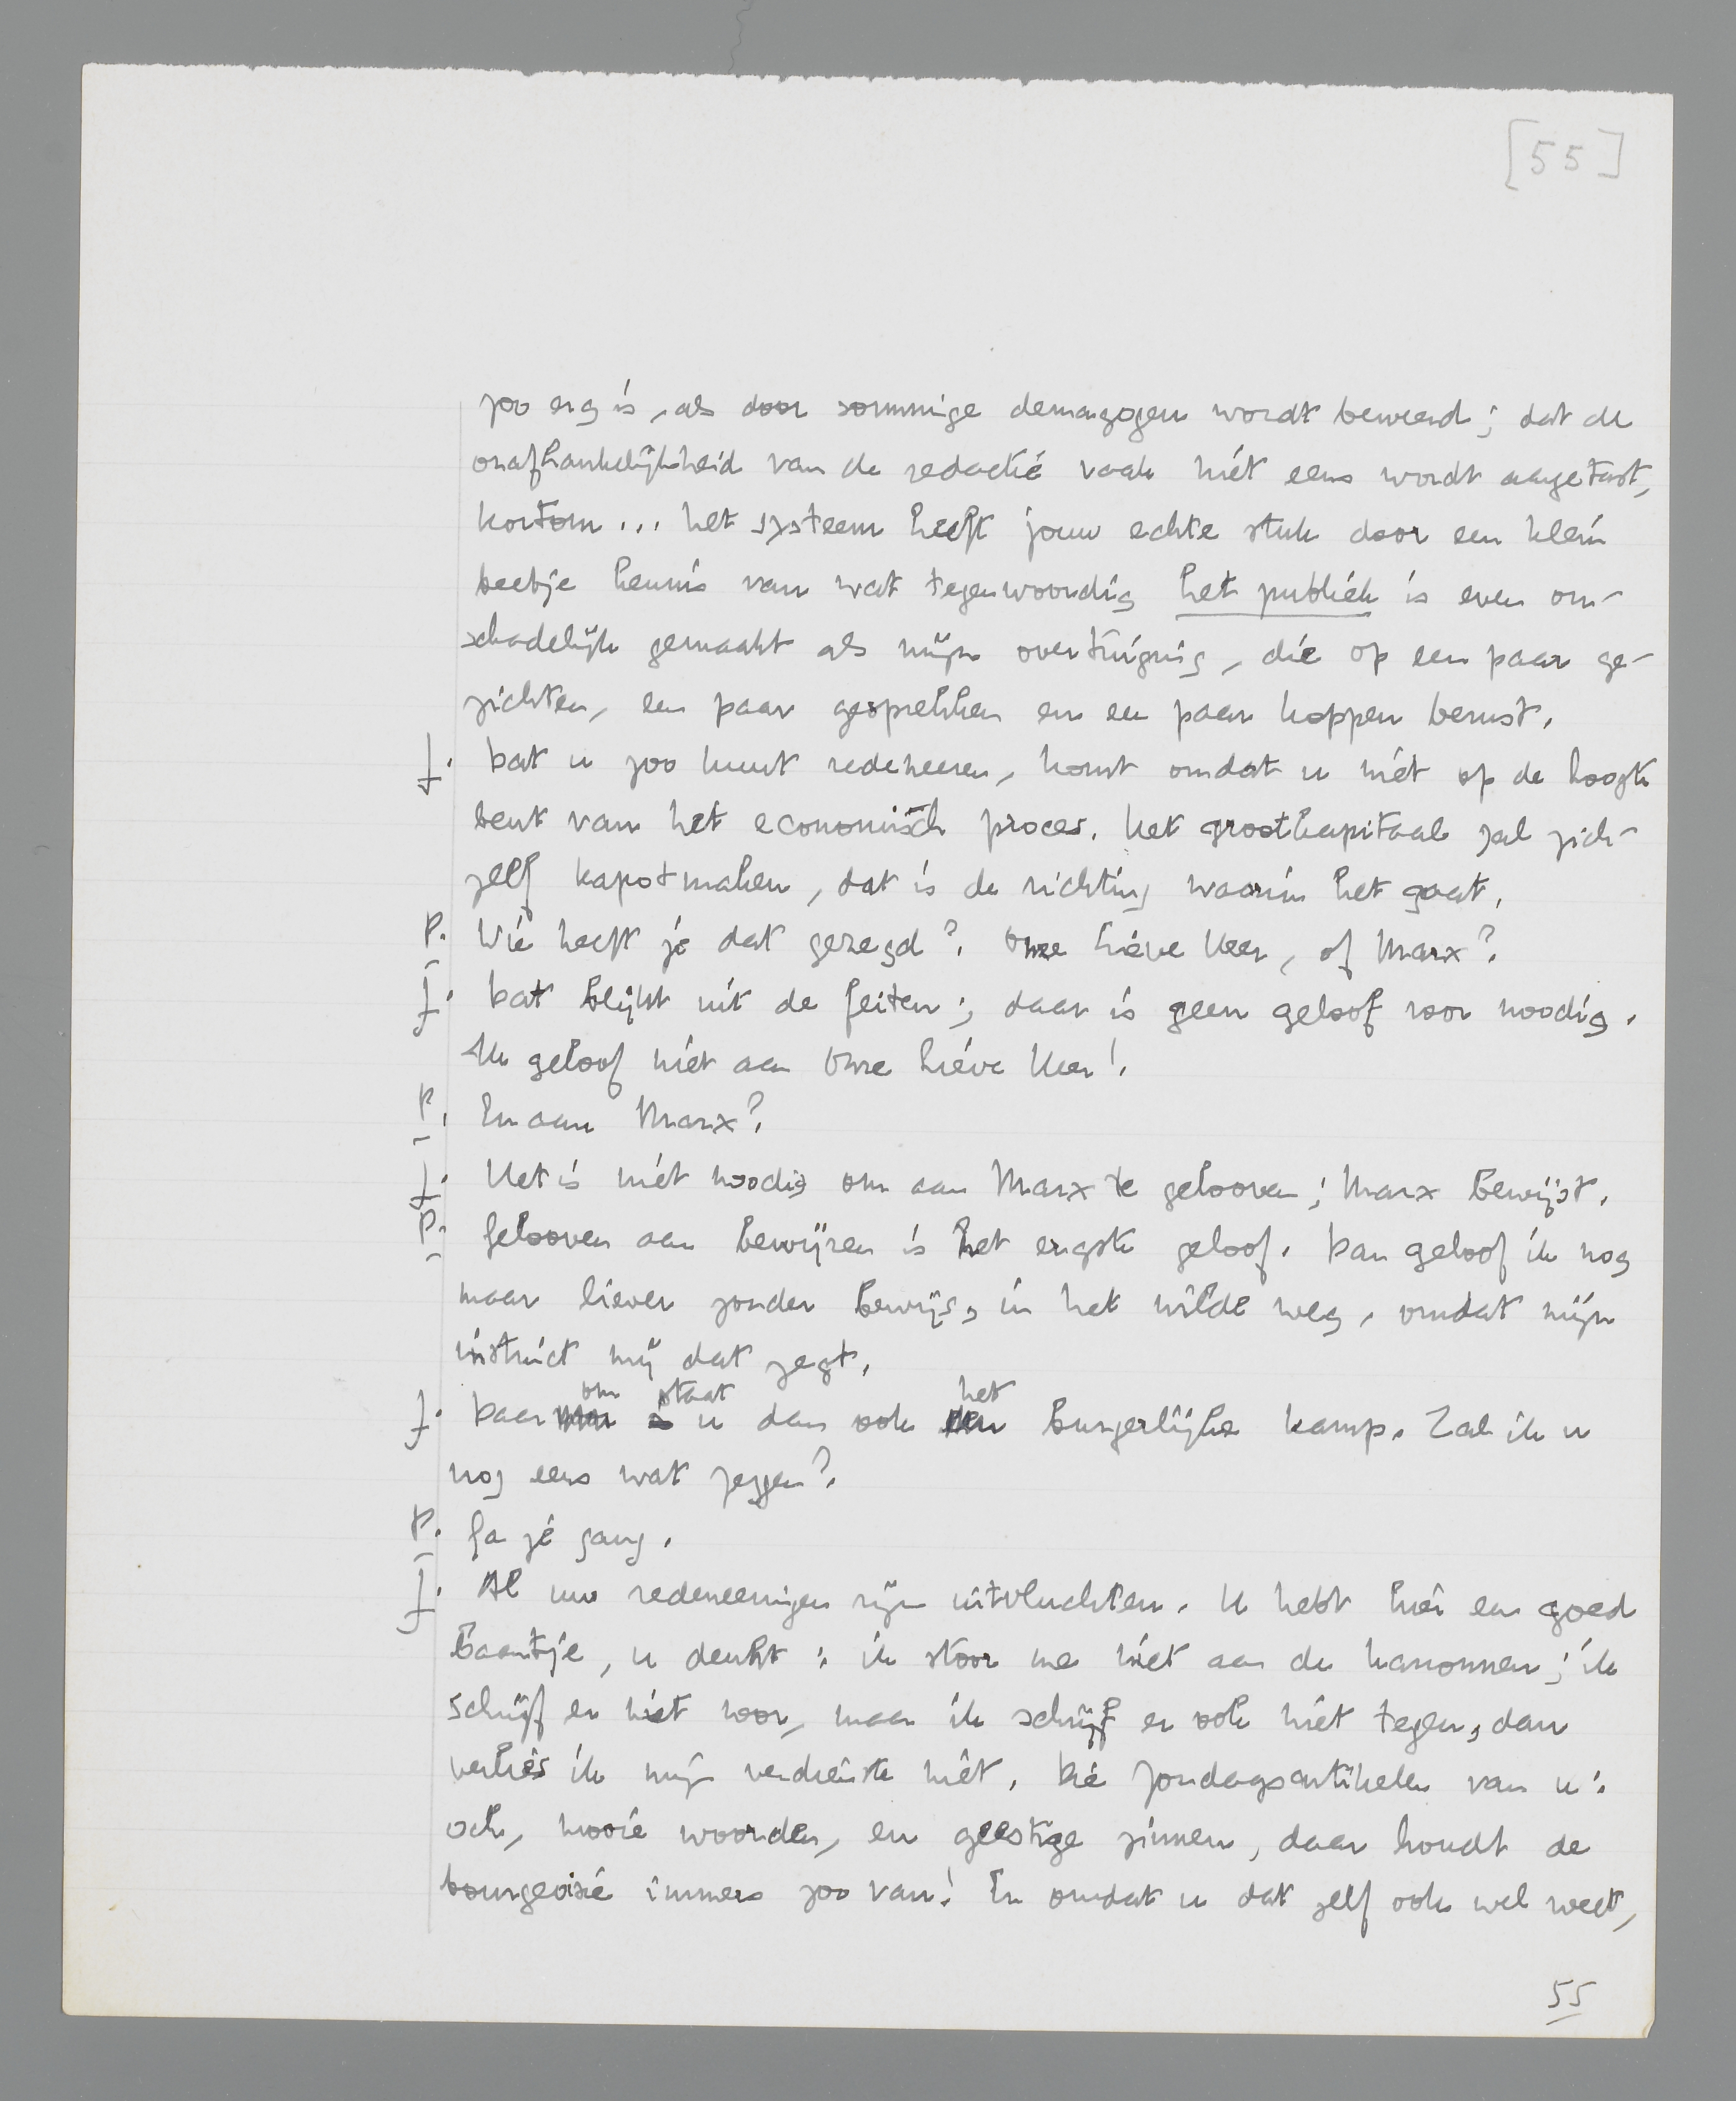 [55]
zoo erg is, als door sommige demagogen wordt beweerd; dat de
onafhankelijkheid van de redactie vaak niet eens wordt aangetast,
kortom... het systeem heeft jouw echte stuk door een klein
beetje kennis van wat tegenwoordig het publiek is even on-
schadelijk gemaakt als mijn overtuiging, die op een paar ge-
zichten, een paar gesprekken en een paar koppen berust.
J. Dat u zoo kunt redeneeren, komt omdat u niet op de hoogte
bent van het economisch proces. Het grootkapitaal zal zich-
zelf kapotmaken, dat is de richting waarin het gaat.
P. Wie heeft je dat gezegd? Onze Lieve Heer, of Marx?
J. Dat blijkt uit de feiten; daar is geen geloof voor noodig.
Ik geloof niet aan Onze Lieve Heer!
P. En aan Marx?
J. Het is niet noodig om aan Marx te gelooven; Marx bewijst.
P. Gelooven aan bewijzen is het ergste geloof. Dan geloof ik nog
maar liever zonder bewijs, in het wilde weg, omdat mijn
instinct mij dat zegt.
J. Daarom staat u dan ook het burgerlijke kamp. Zal ik u
nog eens wat zeggen?
P. Ga je gang.
J. Al uw redeneeringen zijn uitvluchten. U hebt hier een goed
baantje, u denkt: ik stoor me niet aan de kanonnen; ik
schrijf er niet voor, maar ik schrijf er ook niet tegen, dan
verlies ik mijn verdienste niet. Die Zondagsartikelen van u:
och, mooie woorden, en geestige zinnen, daar houdt de
bourgeoisie immers zoo van! En omdat u dat zelf ook wel weet,
55